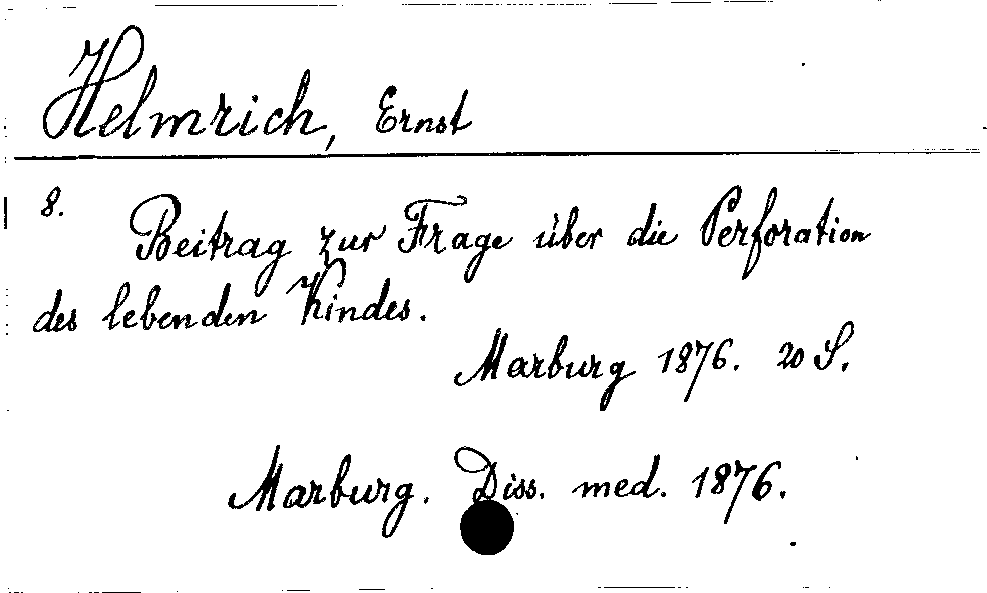 Helmrich, Ernst
8.
Beitrag zur Frage über die Perforation
des lebenden Kindes.
Marburg 1876. 20 S.
Marburg. Diss. med. 1876.